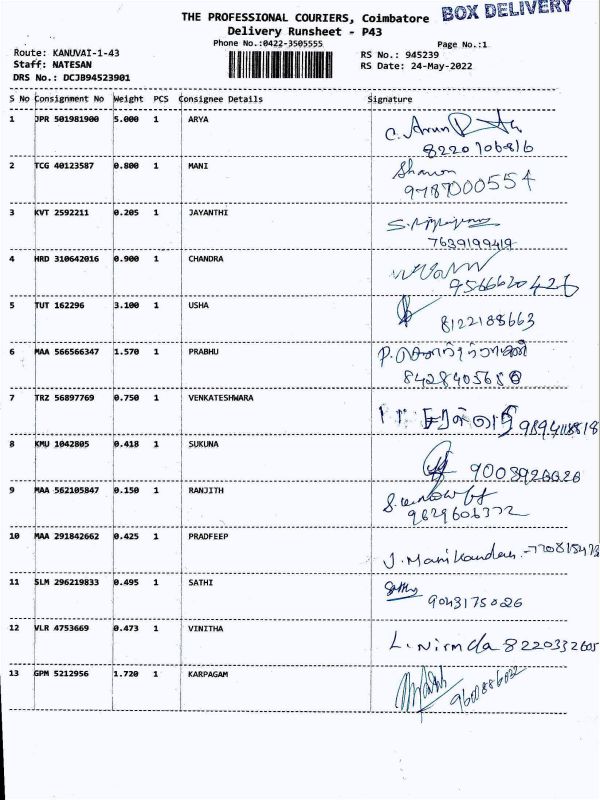 BOX DELIVERY
THE PROFESSIONAL COURIERS, Coimbatore
Delivery Runsheet - P43
Phone No.:0422-3505555 Page No.:1
Route: KANUVAI-1-43 RS No.: 945239
Staff: NATESAN RS Date: 24-May-2022
DRS No.: DCJB94523901
S No Consignment No Weight PCS Consignee Details Signature
1 JPR 501981900 5.000 1 ARYA
8220706816
2 TCG 40123587 0.800 1 MANI
9787000554
3 KVT 2592211 0.205 1 JAYANTHI
7639199419
4 HRD 310642016 0.900 1 CHANDRA
9566620426
5 TUT 162296 3.100 1 USHA
8122188663
6 MAA 566566347 1.570 1 PRABHU
7 TRZ 56897769 0.750 1 VENKATESHWARA
8 KMU 1042805 0.418 1 SUKUNA
9 MAA 562105847 0.150 1 RANJITH
10 MAA 291842662 0.425 1 PRADFEEP
J. Manikandan
11 SLM 296219833 0.495 1 SATHI
9043175026
12 VLR 4753669 0.473 1 VINITHA
8220332605
13 GPM 5212956 1.720 1 KARPAGAM